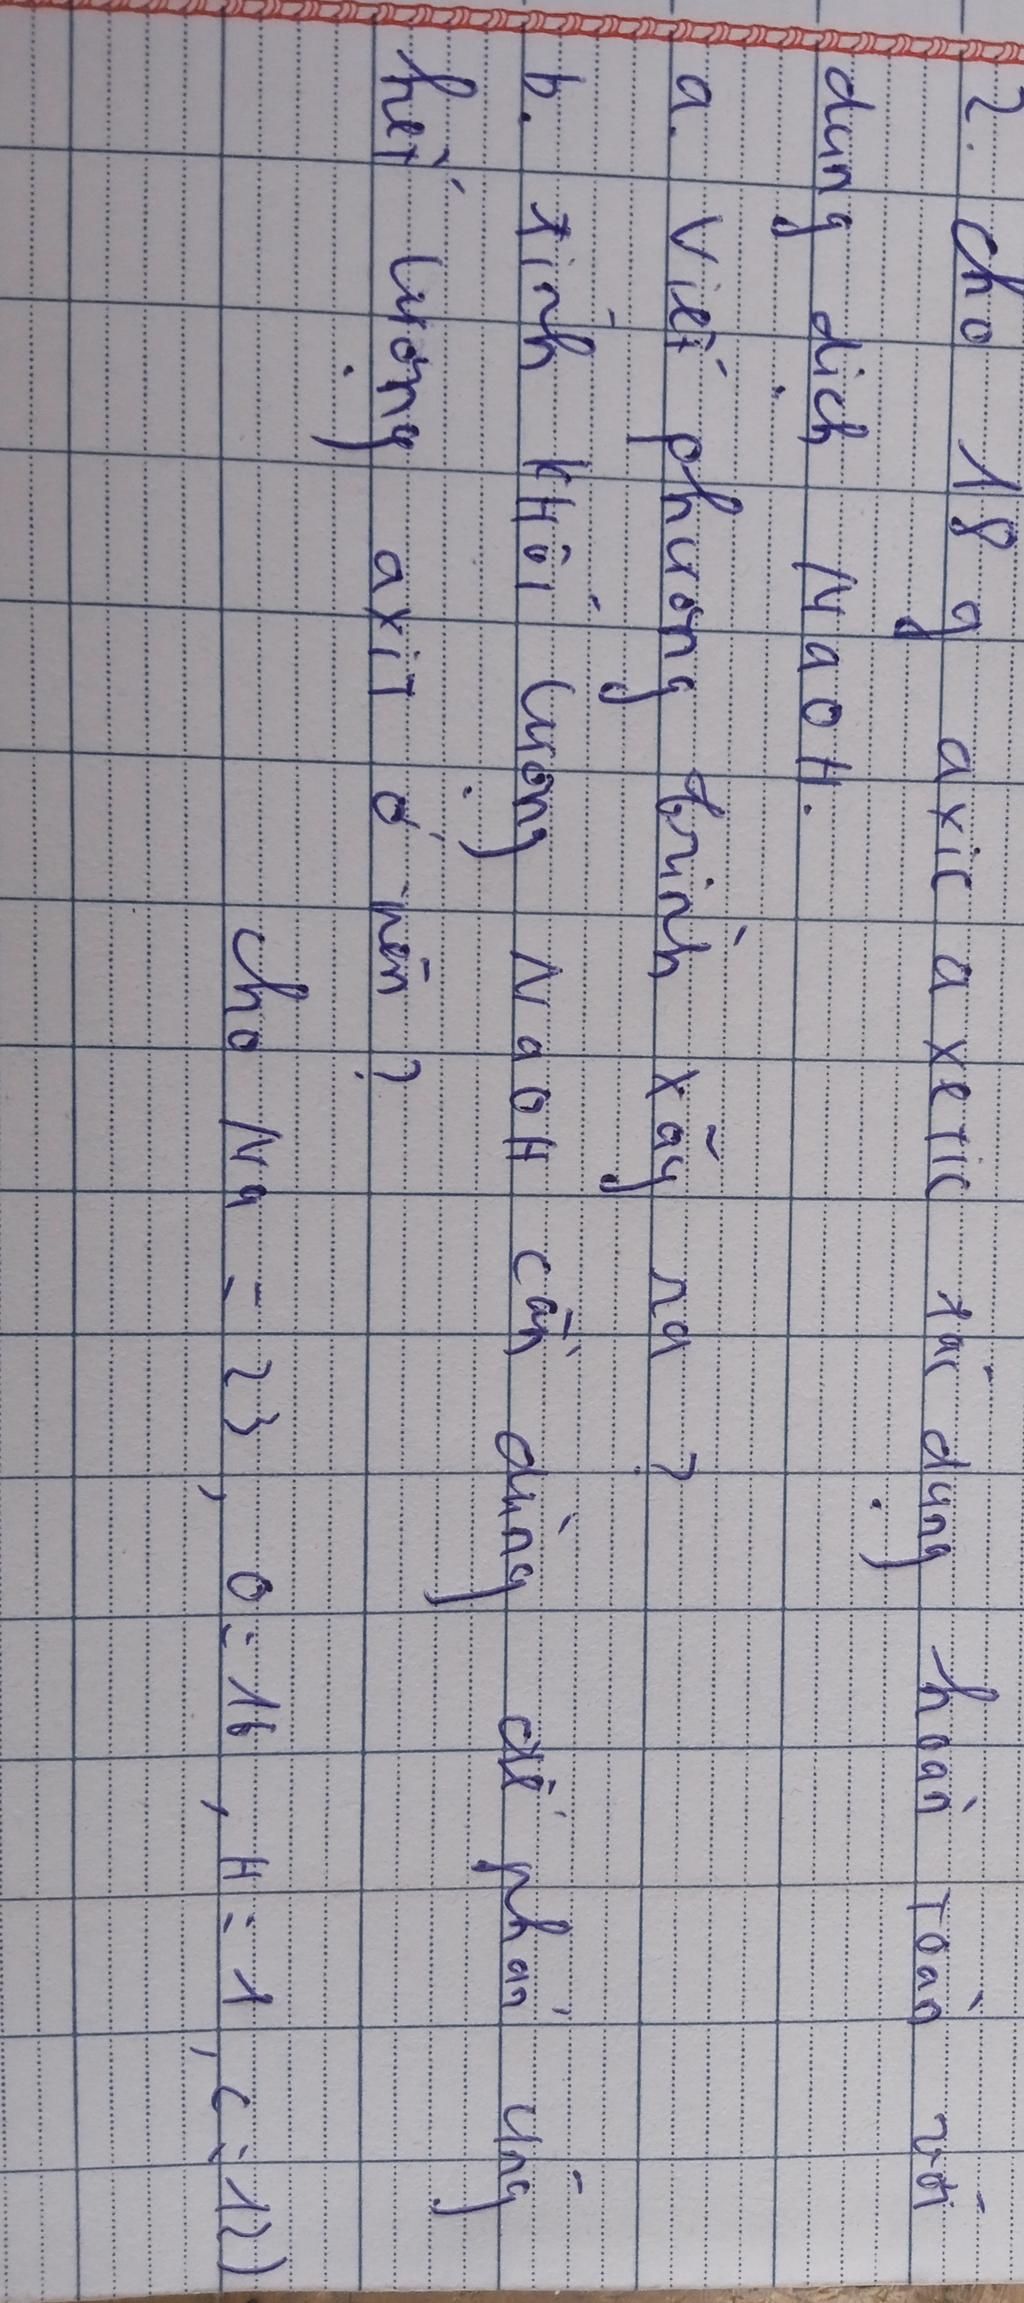 2. Cho 18 g axic axetic tác dụng hoàn toàn với
dung dịch NaOH.
a. Viết phương trình xãy ra ?
b. Tính khối lượng NaOH cần dùng để phản ứng
hết lượng axit ở nên ?
Cho Na = 23, O = 16, H = 1, C = 12)